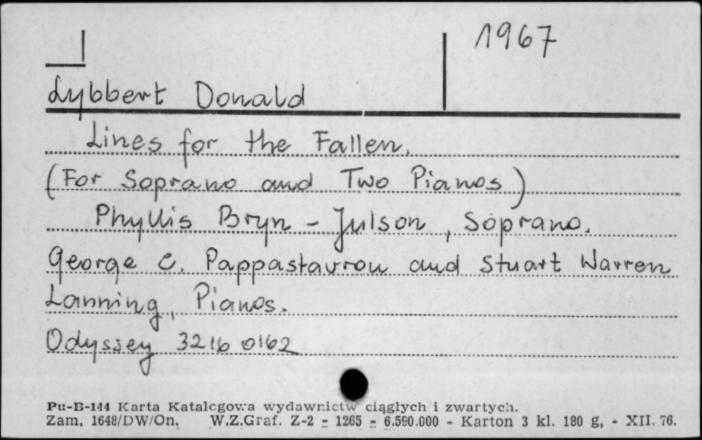 1967
Lybbert Donald
Lines for the Fallen.
(For Soprano and Two Pianos)
Phyllis Bryn - Julson, Soprano.
George C. Pappastavrou and Stuart Warren
Lanning, Pianos.
Odyssey 3216 0162
Pu-B-144 Karta Katalogowa wydawnictw ciągłych i zwartych.
Zam. 1648/DW/On. W.Z.Graf. Z-2 - 1265 - 6.590.000 - Karton 3 kl. 180 g. - XII. 76.